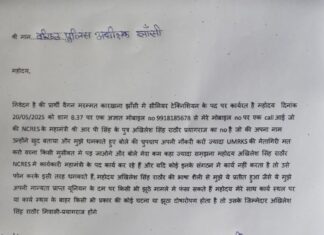 श्री मान वरिष्ठ पुलिस अधीक्षक झाँसी
महोदय,
निवेदन है की प्रार्थी वैगन मरम्मत कारखाना झाँसी में सीनियर टेक्निशियन के पद पर कार्यरत है महोदय दिनांक
20/05/2025 को शाम 8.37 पर एक अज्ञात मोबाइल no 9918185678 से मेरे मोबाइल no पर एक call आई जो
की NCRES के महामंत्री श्री आर पी सिंह के पुत्र अखिलेश सिंह राठौर प्रयागराज का no है जो की अपना नाम
उन्होंने खुद बताया और मुझे धमकाते हुए बोले की चुपचाप अपनी नौकरी करो ज्यादा UMRKS की नेतागिरी मत
करो वरना किसी मुसीबत में पड़ जाओगे और बोले मेरा कम कहा ज्यादा समझना महोदय अखिलेश सिंह राठौर
NCRES में कार्यकारी महामंत्री के पद पर कार्य कर रहे हैं और यदि कोई इनके संगठन में कार्य नहीं करता है तो उसे
फोन करके इसी तरह धमकाते हैं, महोदय अखिलेश सिंह राठौर की भाषा शैली से मुझे ये प्रतीत हुआ जैसे ये मुझे
अपनी मान्यता प्राप्त यूनियन के दम पर किसी भी झूठे मामले में फंसा सकते हैं महोदय मेरे साथ कार्य स्थल पर
या कार्य स्थल के बाहर किसी भी प्रकार की कोई घटना या झूठा दोषारोपण होता है तो उसके जिम्मेदार अखिलेश
सिंह राठौर निवासी-प्रयागराज होंगे